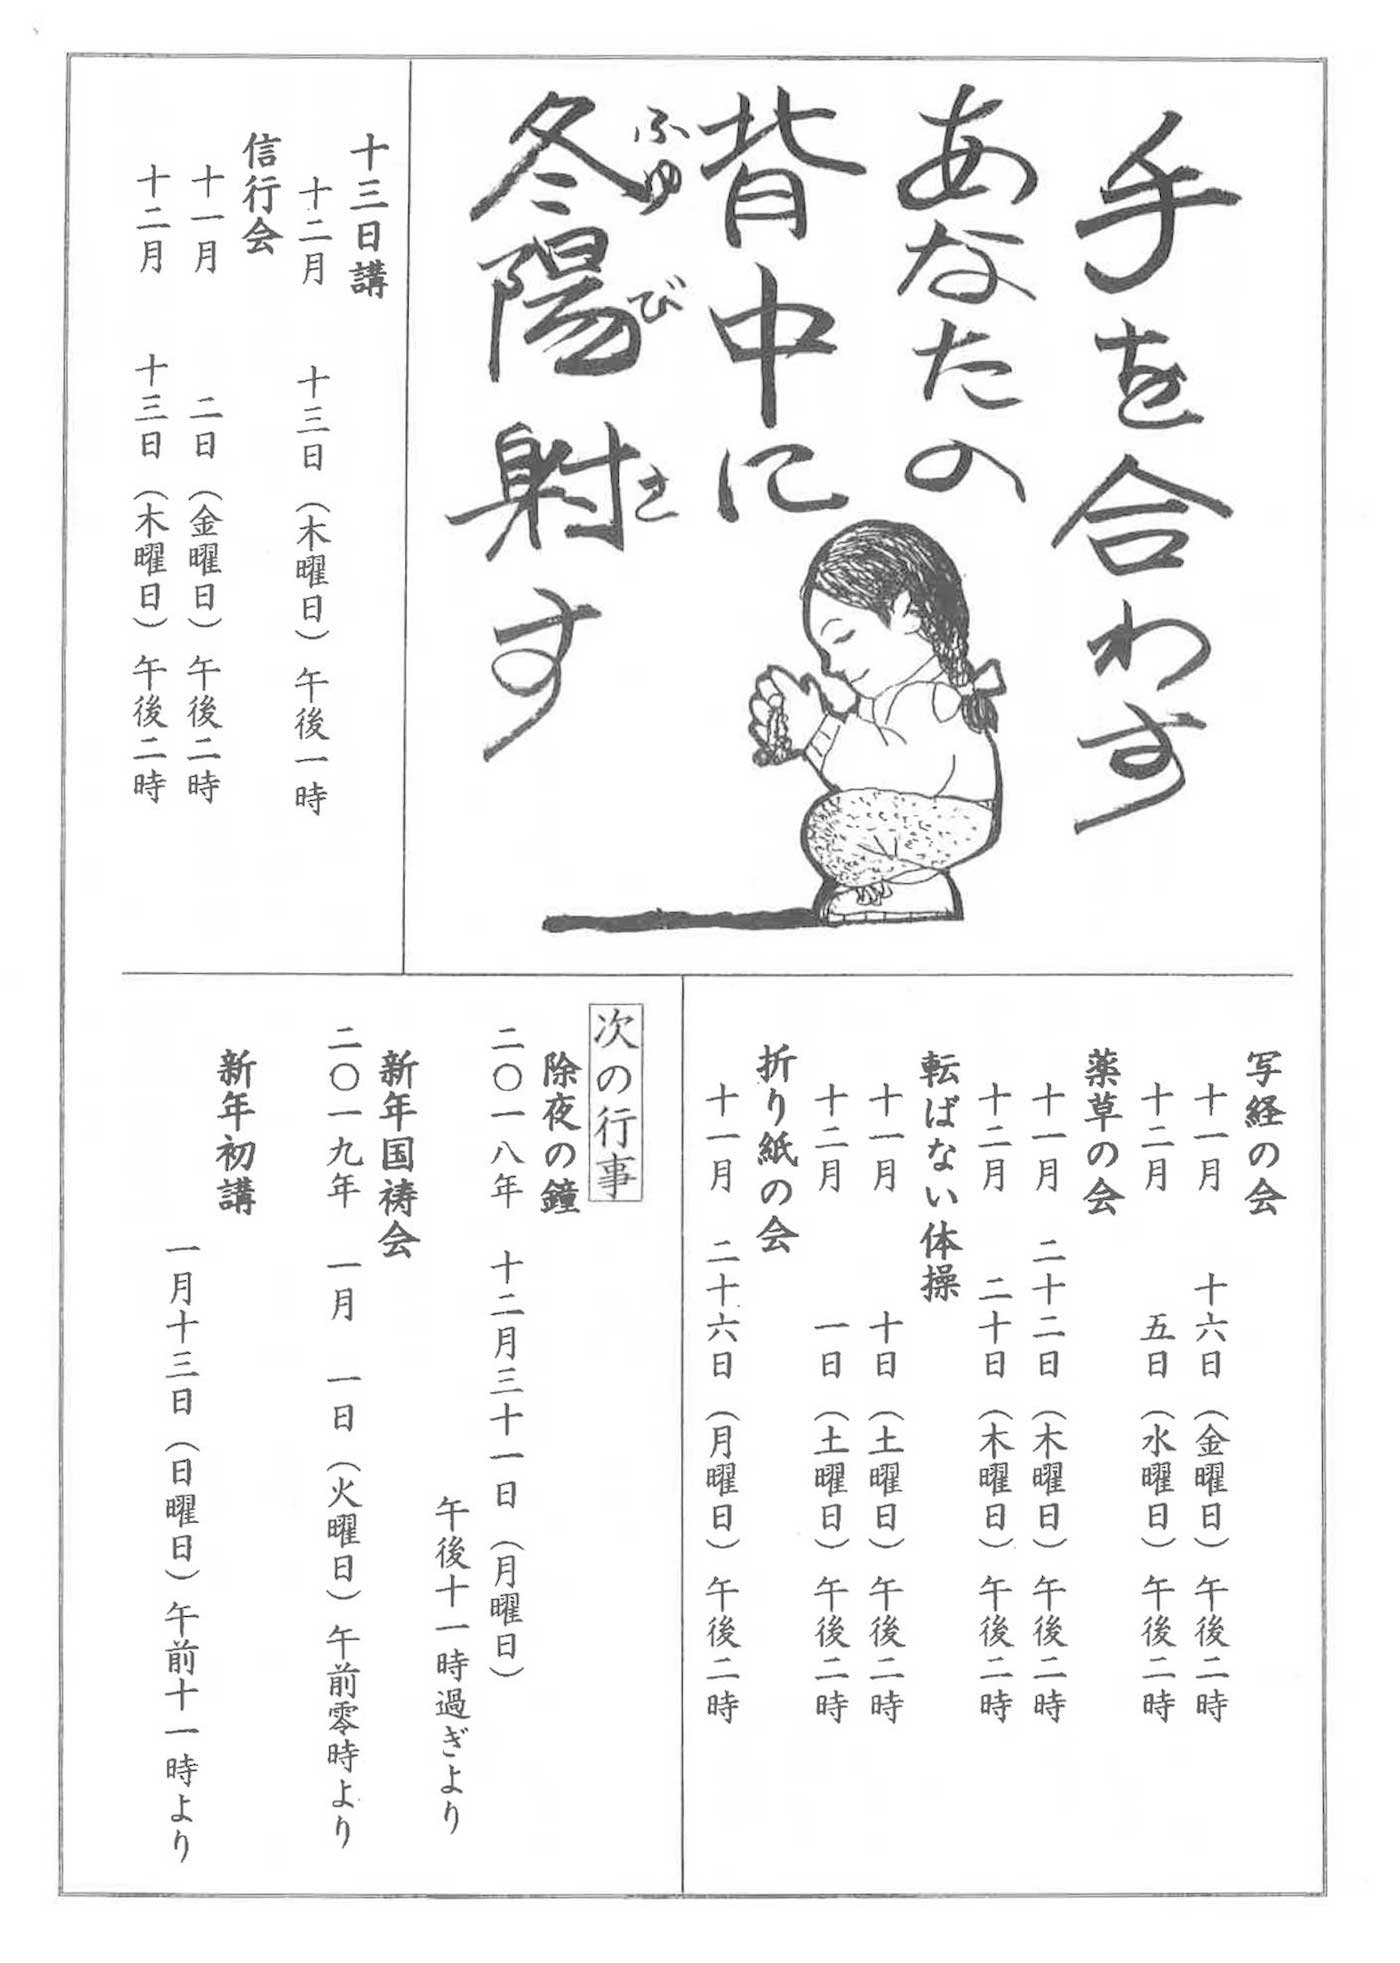 手を合わす
あなたの
背中に
冬陽射す
ふゆ
び
さ
十三日講
十二月 十三日(木曜日)午後一時
信行会
十一月 二日(金曜日)午後二時
十二月 十三日(木曜日)午後二時
写経の会
十一月 十六日(金曜日)午後二時
十二月 五日(水曜日)午後二時
薬草の会
十一月 二十二日(木曜日)午後二時
十二月 二十日(木曜日)午後二時
転ばない体操
十一月 十日(土曜日)午後二時
十二月 一日(土曜日)午後二時
折り紙の会
十一月 二十六日(月曜日)午後二時
次の行事
除夜の鐘
二〇一八年 十二月三十一日(月曜日)
午後十一時過ぎより
新年国祷会
二〇一九年 一月 一日(火曜日)午前零時より
新年初講
一月十三日(日曜日)午前十一時より